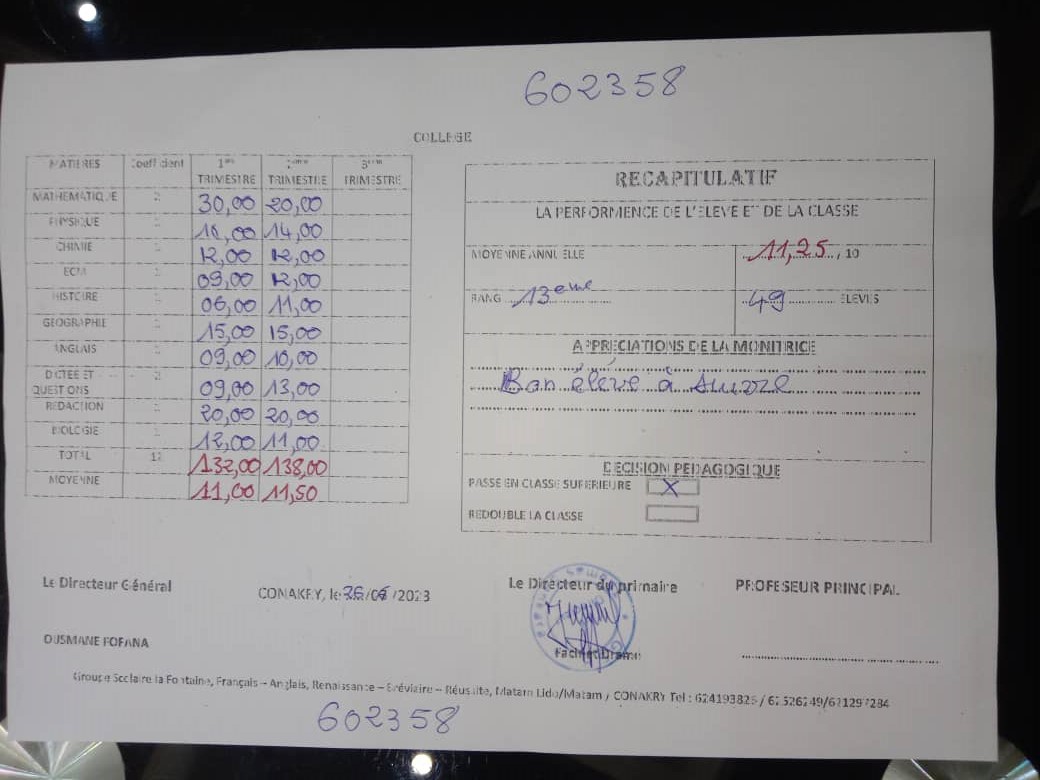 602358
COLLEGE
MATIERES Coefficient 1ere TRIMESTRE 2eme TRIMESTRE 3eme TRIMESTRE
MATHEMATIQUE 2 30,00 20,00
PHYSIQUE 14,00
CHIMIE 12,00 12,00
ECM 09,00 12,00
HISTOIRE 06,00 11,00
GEOGRAPHIE 15,00 15,00
ANGLAIS 09,00 10,00
DICTEE ET QUESTIONS 09,00 13,00
REDACTION 20,00 20,00
BIOLOGIE 12,00 11,00
TOTAL 12 132,00 138,00
MOYENNE 11,00 11,50
RECAPITULATIF
LA PERFORMENCE DE L'ELEVE ET DE LA CLASSE
MOYENNE ANNUELLE 11,25 , 10
RANG 13eme 49 ELEVES
APPRÉCIATIONS DE LA MONITRICE
Bon élève à suivre
DECISION PEDAGOGIQUE
PASSE EN CLASSE SUPERIEURE X
REDOUBLE LA CLASSE
Le Directeur Général
CONAKRY, le /2023
Le Directeur du primaire
PROFESEUR PRINCIPAL
OUSMANE FOFANA
Groupe Scolaire la Fontaine, Français – Anglais, Renaissance – Bréviaire – Réussite, Matam Lido/Matam / CONAKRY Tel :
602358